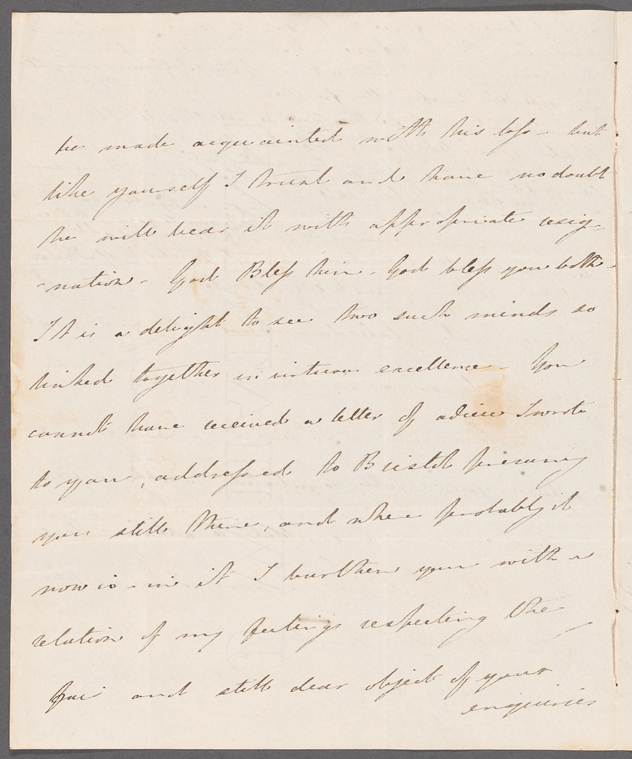 be made acquainted with this loss - but
like yourself I trust and have no doubt
he will bear it with appropriate resig
-nation - God Bless him - God bless you both -
It is a delight to see two such minds so
linked together in virtuous excellence - You
cannot have received a letter of advice I wrote
to you, addressed to Bristol presuming
you still there, and where probably it
now is - in it I burthen you with a
relation of my feelings respecting the
fair and still dear object of your
enquiries